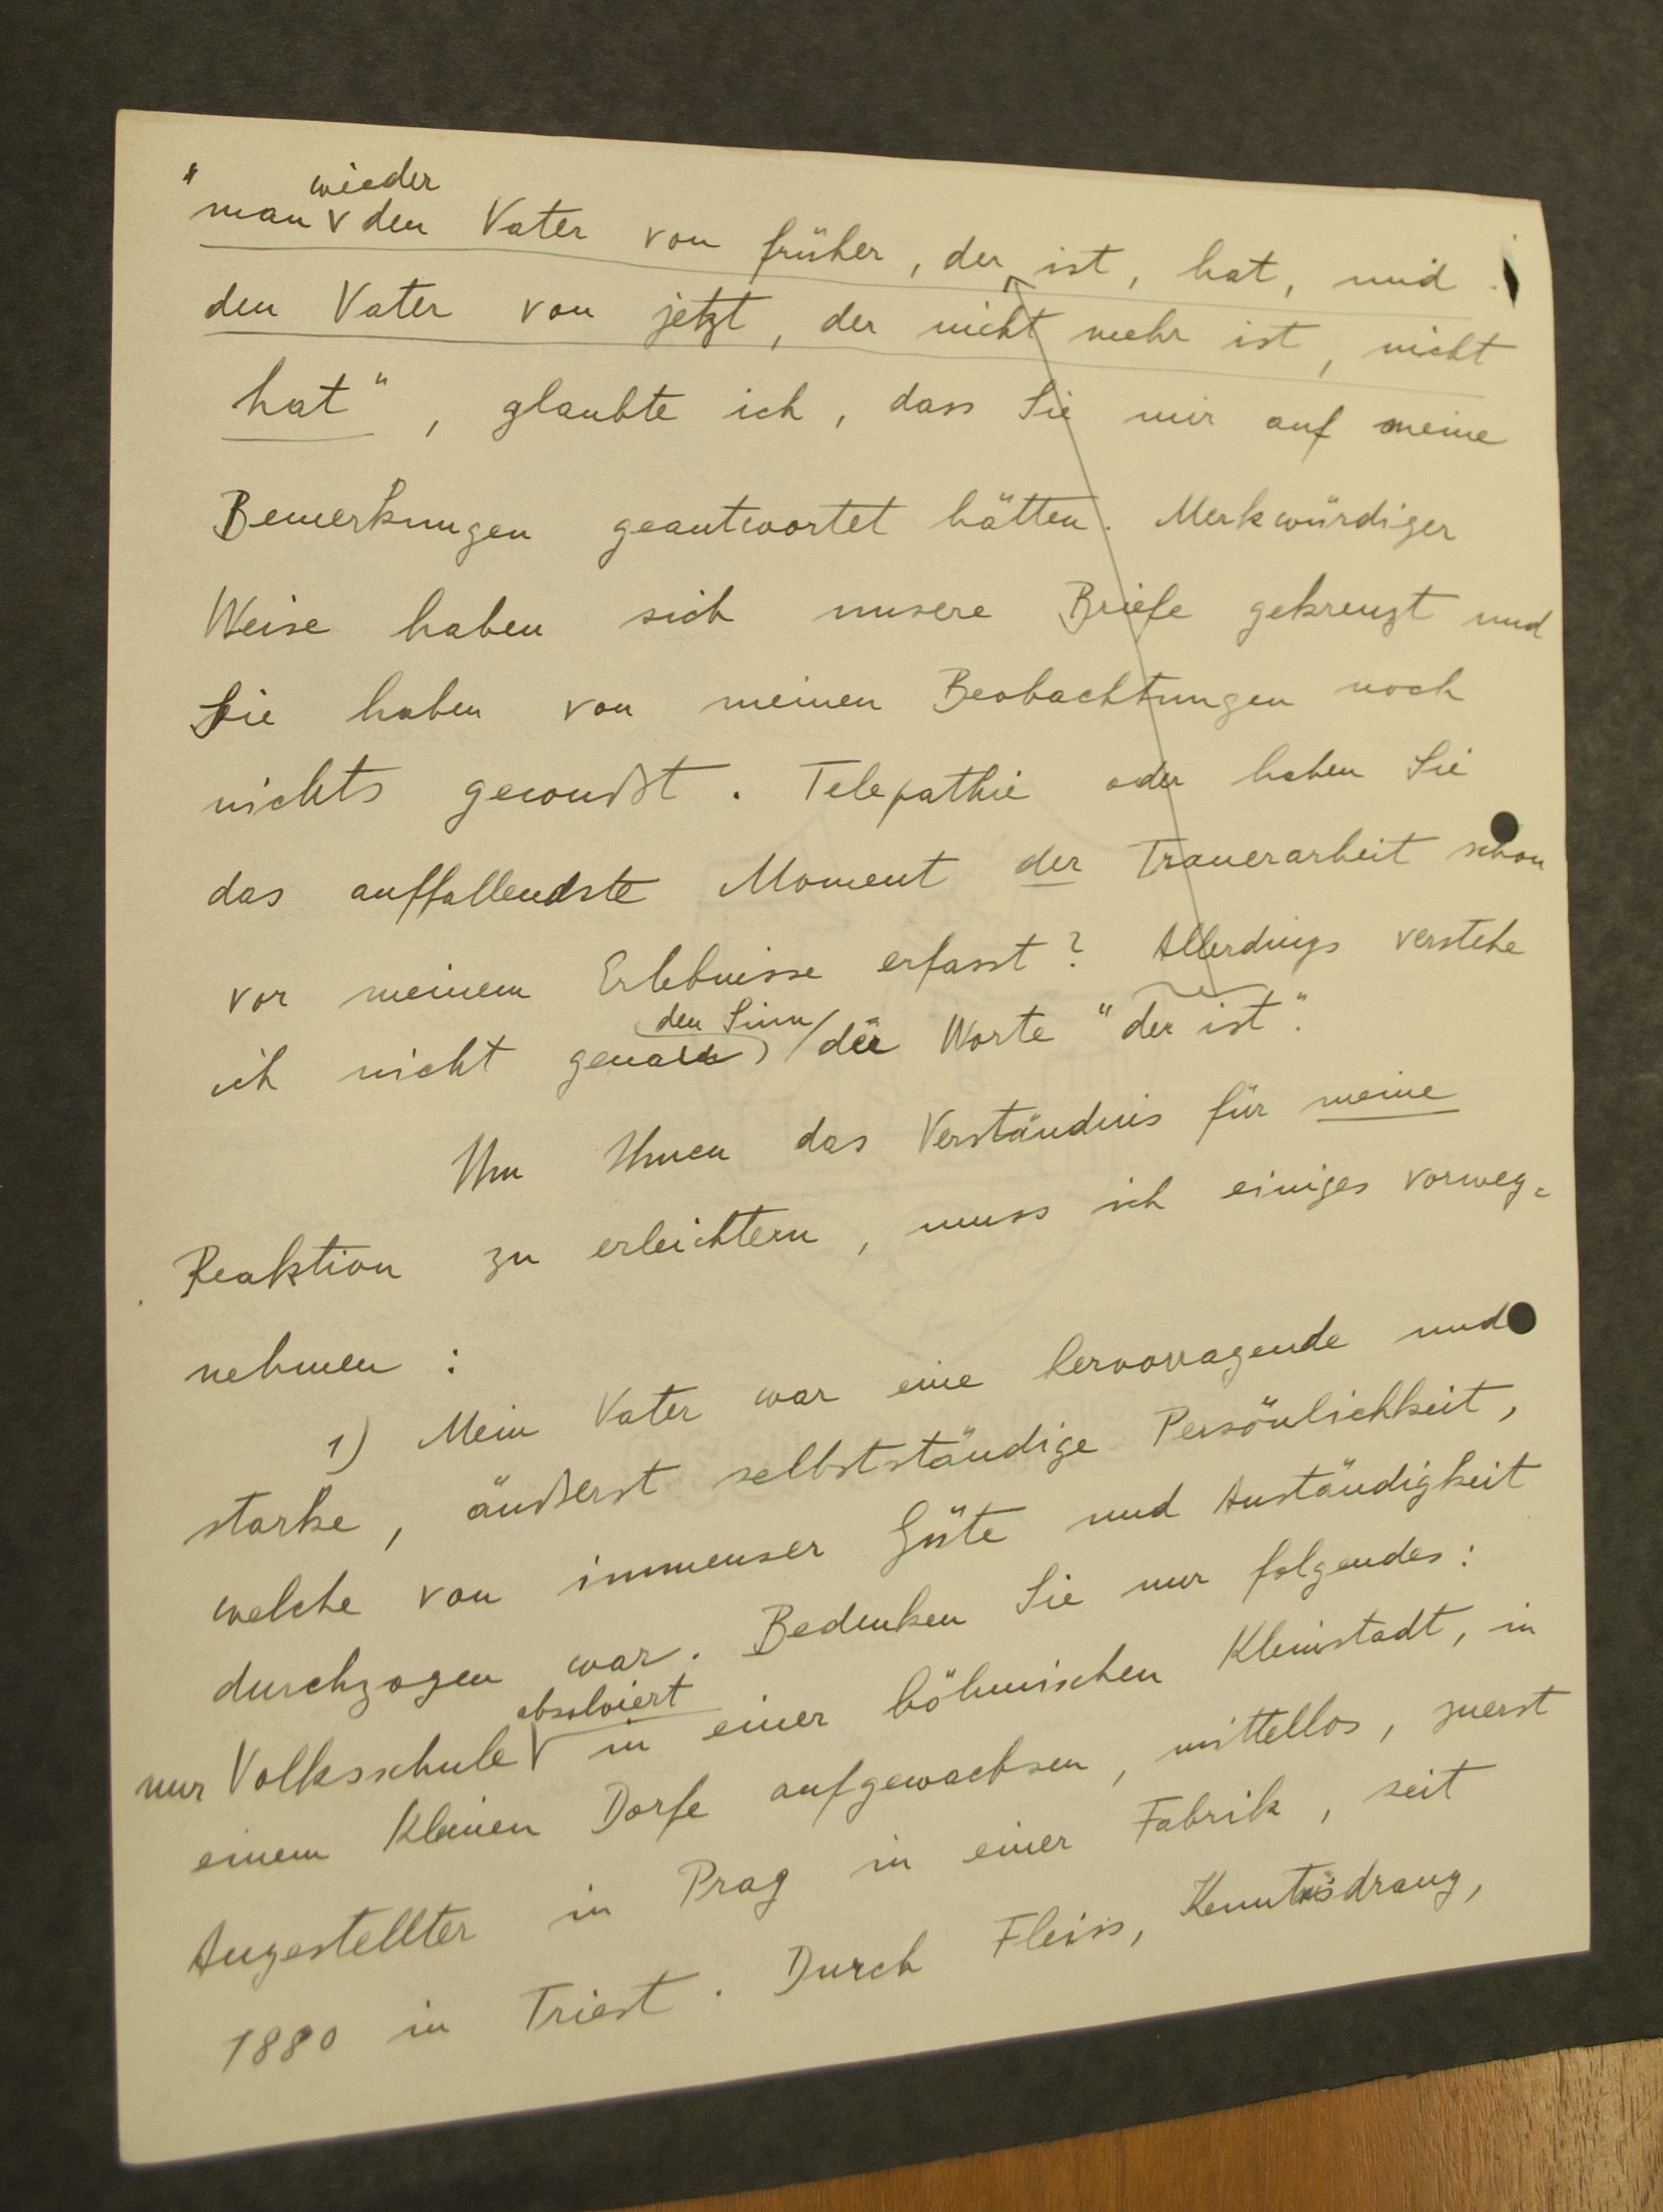 "man wieder den Vater von früher, der ist, hat, und
den Vater von jetzt, der nicht mehr ist, nicht
hat", glaubte ich, dass Sie mir auf meine
Bemerkungen geantwortet hätten. Merkwürdiger
Weise haben sich unsere Briefe gekreuzt und
Sie haben von meinen Beobachtungen noch
nichts gewußt. Telepathie oder haben Sie
das auffallendste Moment der Trauerarbeit schon
vor meinem Erlebnisse erfasst? Allerdings verstehe
ich nicht genau den Sinn der Worte "der ist".
Um Ihnen das Verständnis für meine
Reaktion zu erleichtern, muss ich einiges vorweg=
nehmen :
1) Mein Vater war eine hervorragende und
starke, äußerst selbstständige Persönlichkeit,
welche von immenser Güte und Anständigkeit
durchzogen war. Bedenken Sie nur folgendes:
nur Volksschule absolviert in einer böhmischen Kleinstadt, in
einem kleinen Dorfe aufgewachsen, mittellos, zuerst
Angestellter in Prag in einer Fabrik, seit
1880 in Triest. Durch Fleiss, Kenntnisdrang,